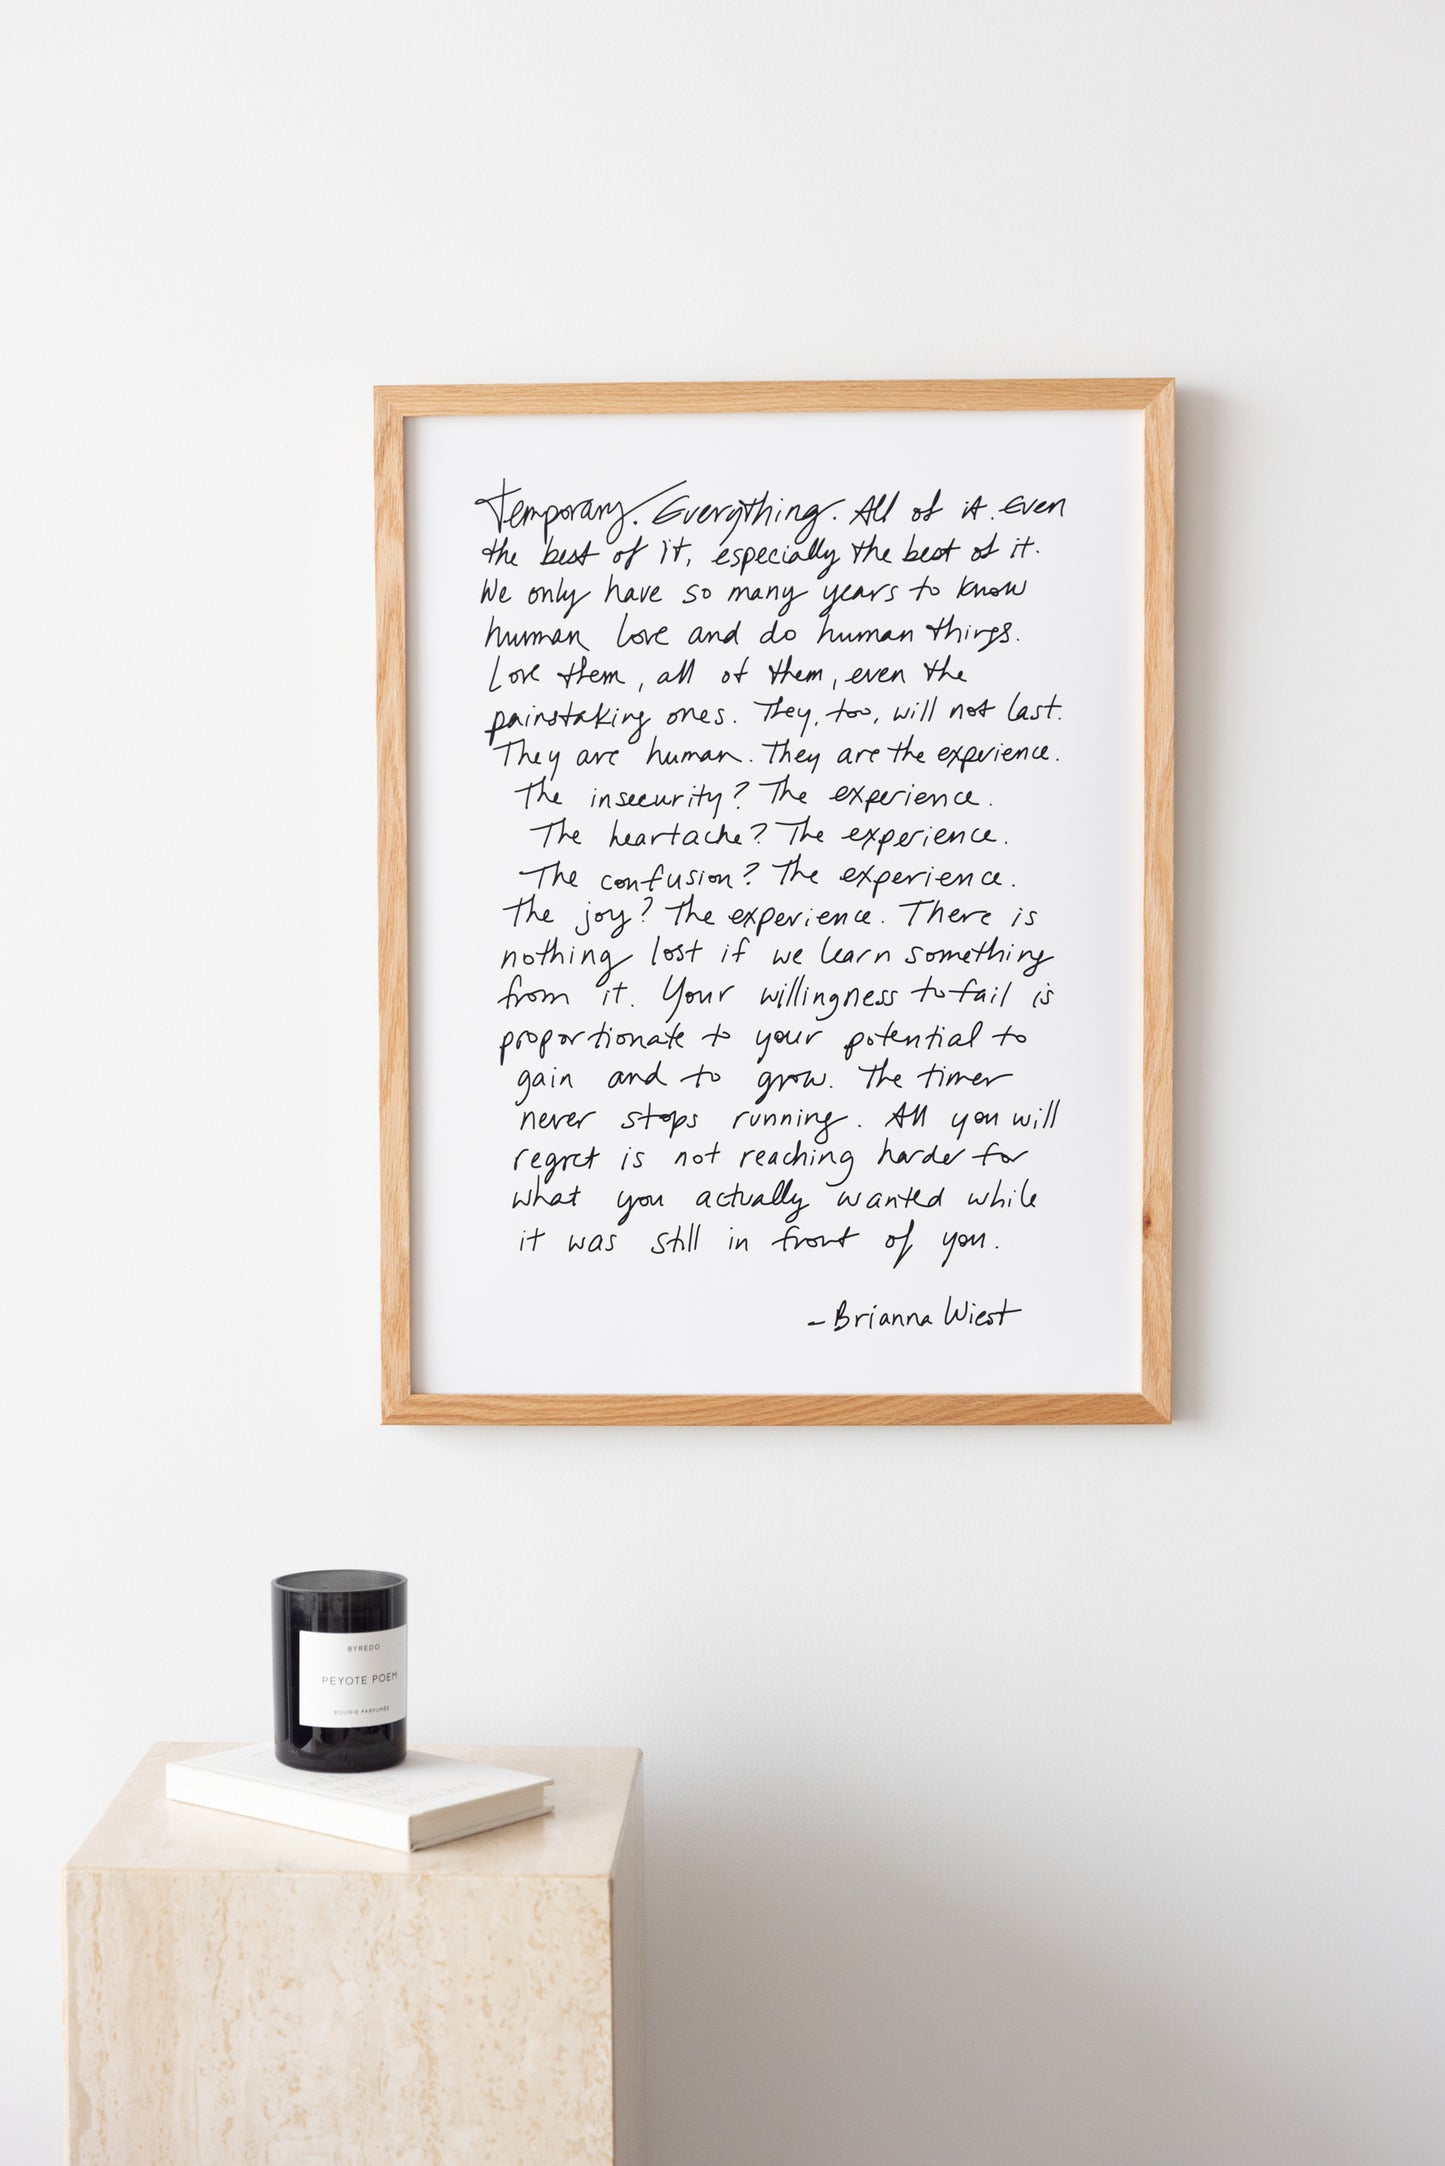 Temporary. Everything. All of it. Even
the best of it, especially the best of it.
We only have so many years to know
human love and do human things.
Love them, all of them, even the
painstaking ones. They, too, will not last.
They are human. They are the experience.
The insecurity? The experience.
The heartache? The experience.
The confusion? The experience.
The joy? The experience. There is
nothing lost if we learn something
from it. Your willingness to fail is
proportionate to your potential to
gain and to grow. The timer
never stops running. All you will
regret is not reaching harder for
what you actually wanted while
it was still in front of you.
- Brianna Wiest
BYREDO
PEYOTE POEM
BOUGIE PARFUMÉE